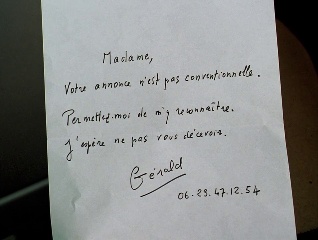 Madame,
Votre annonce n'est pas conventionnelle.
Permettez-moi de m'y reconnaître.
J'espère ne pas vous décevoir.
Gérald
06.29.47.12.54